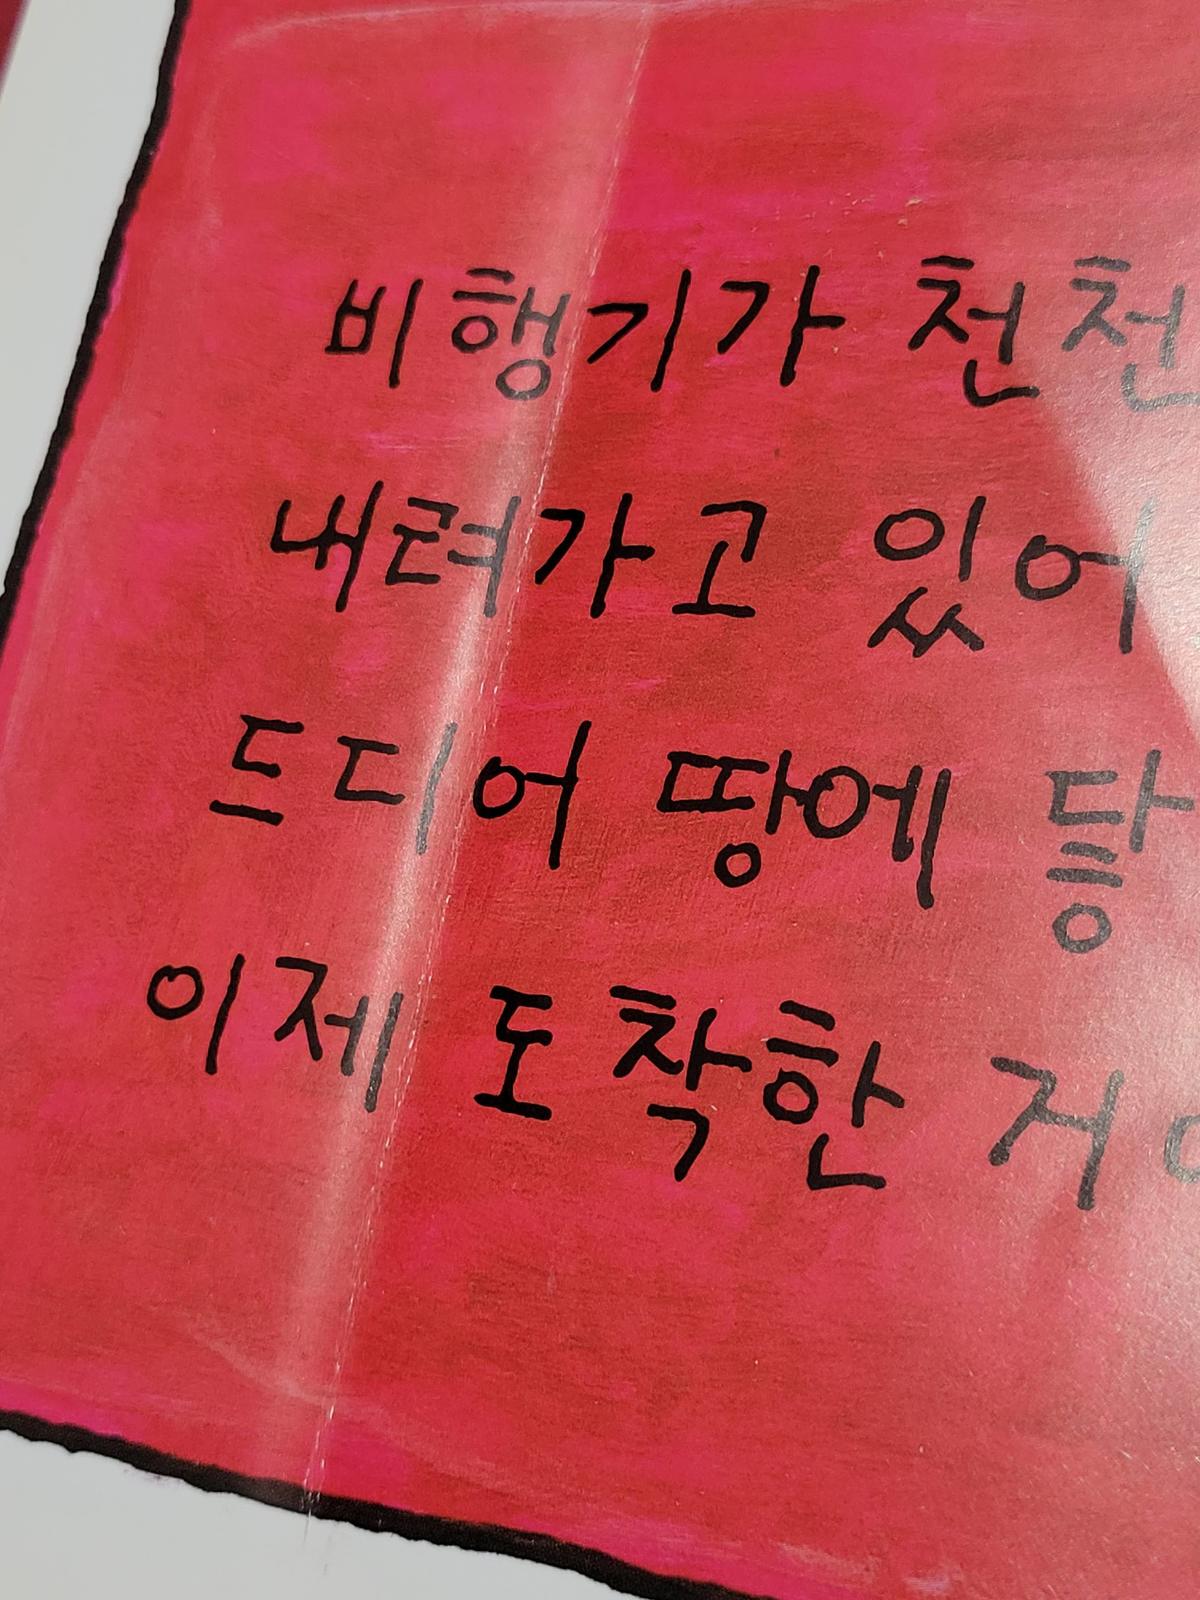 비행기가 천천
내려가고 있어
드디어 땅에
이제 도착한 거